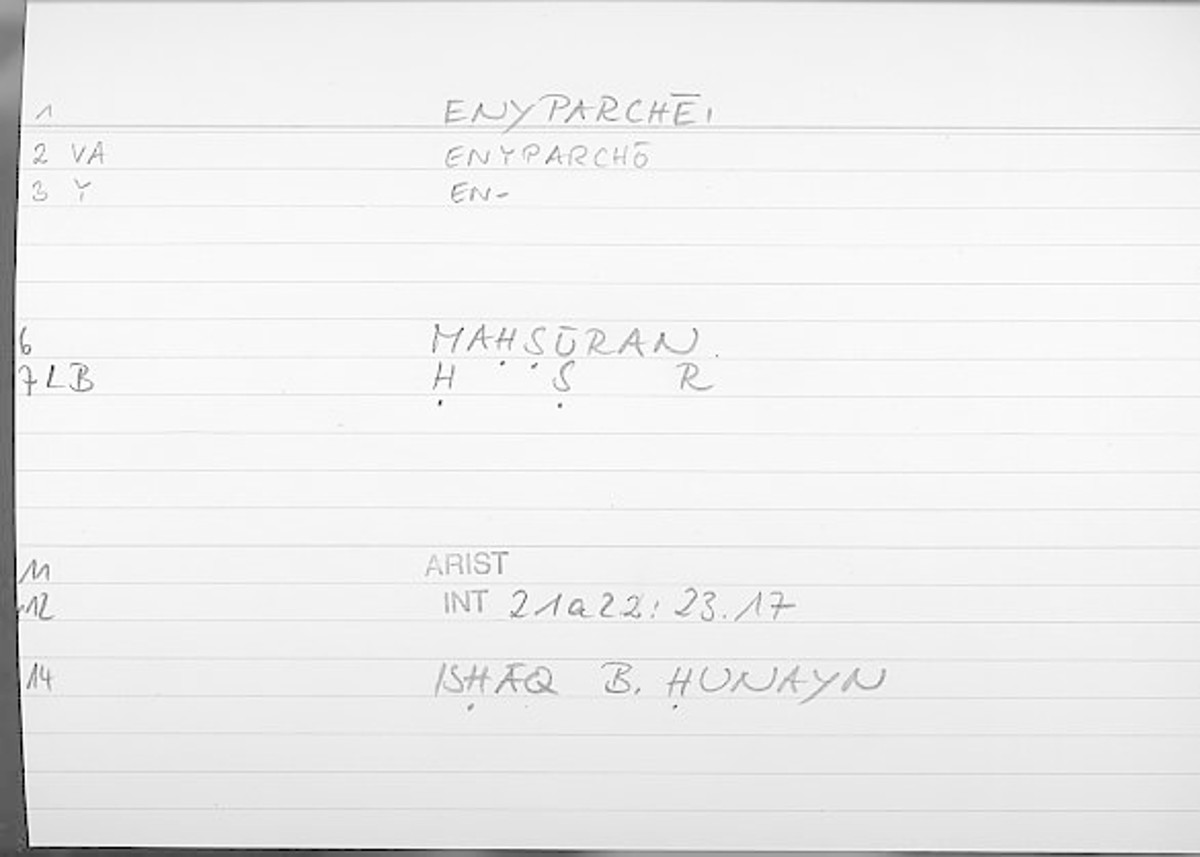 1 ENYPARCHĒI
2 VA ENYPARCHŌ
3 Y EN-
6 MAḤṢŪRAN
7 LB Ḥ Ṣ R
11 ARIST
12 INT 21a22: 23.17
14 ISḤĀQ B. ḤUNAYN